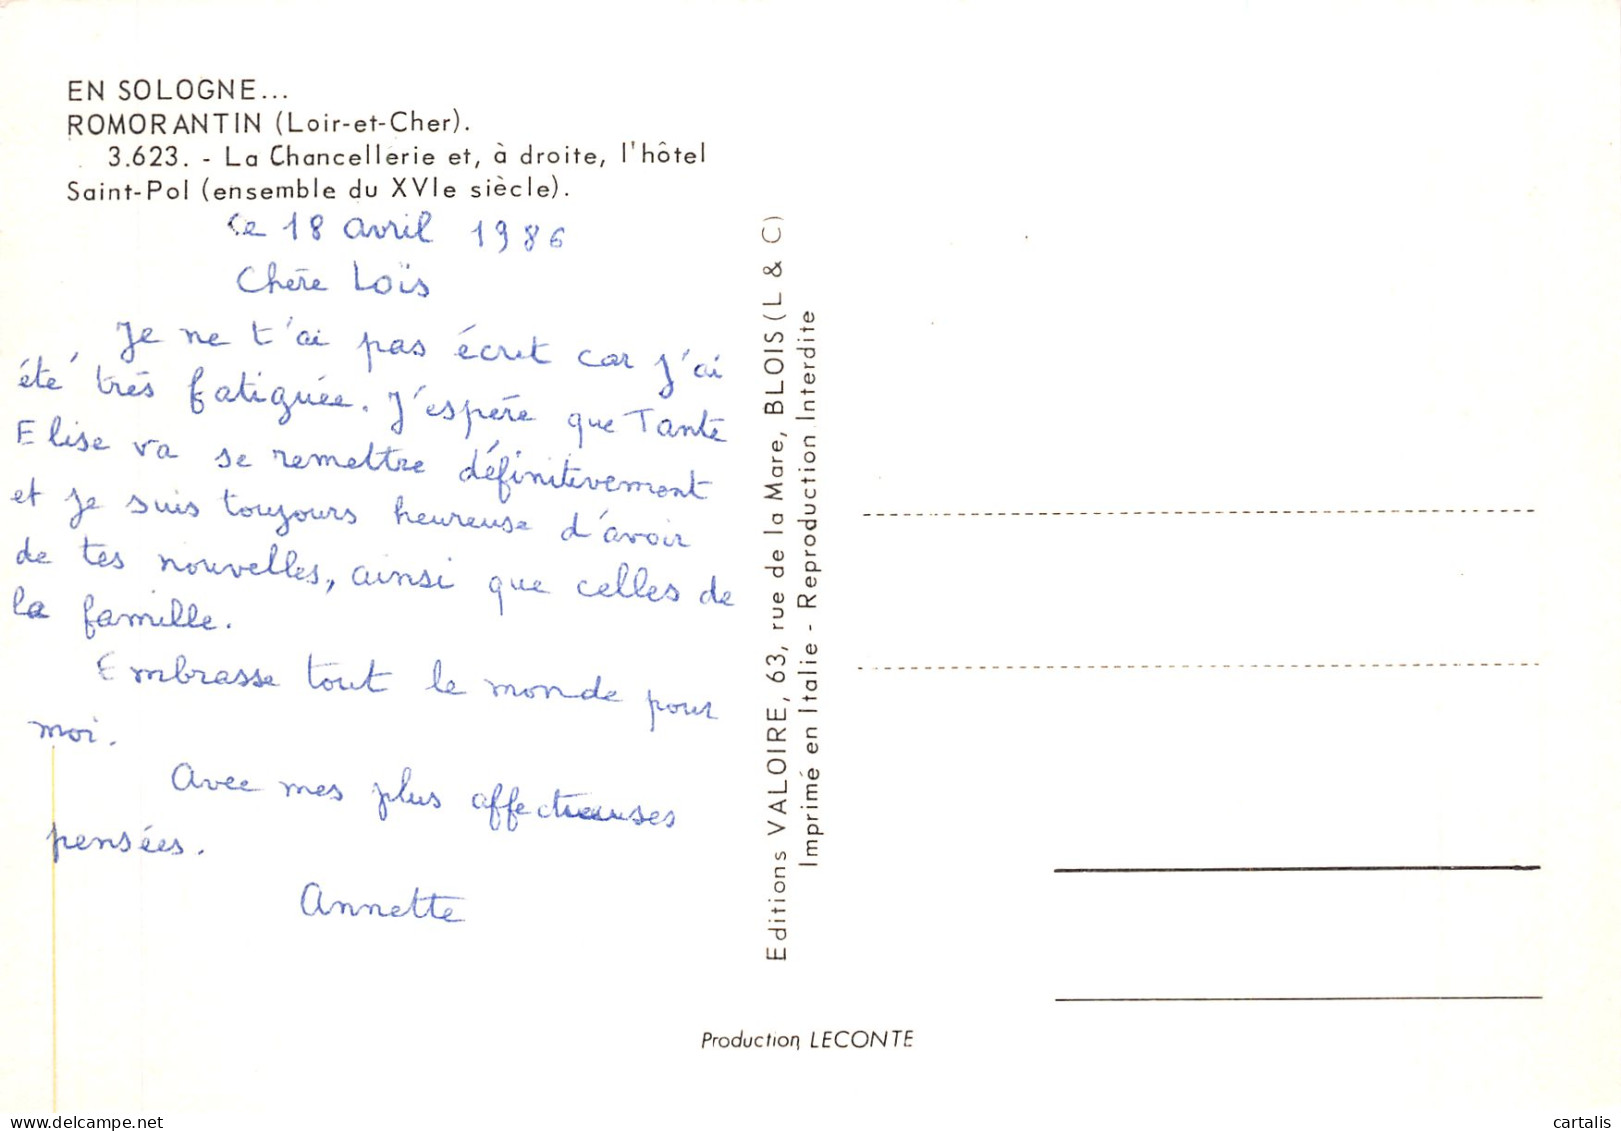 EN SOLOGNE...
ROMORANTIN (Loir-et-Cher).
3.623. - La Chancellerie et, à droite, l'hôtel
Saint-Pol (ensemble du XVIe siècle).
Ce 18 avril 1986
Chère Loïs
Je ne t'ai pas écrit car j'ai
été très fatiguée. J'espère que Tante
Elise va se remettre définitivement
et je suis toujours heureuse d'avoir
de tes nouvelles, ainsi que celles de
la famille.
Embrasse tout le monde pour
moi.
Avec mes plus affectueuses
pensées.
Annette
Editions VALOIRE, 63, rue de la Mare, BLOIS (L & C)
Imprimé en Italie - Reproduction Interdite
Production LECONTE
delcampe.net
cartalis